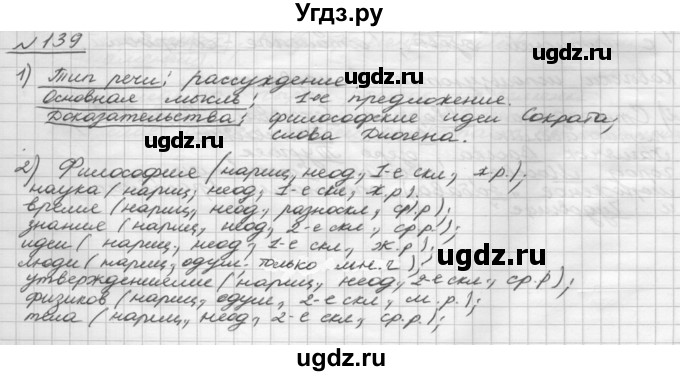 Угдз.ру
№ 139
1) Тип речи: рассуждение
Основная мысль: 1-е предложение.
Доказательства: философские идеи Сократа;
слова Диогена.
2) Философия (нариц, неод, 1-е скл, ж.р.);
наука (нариц, неод, 1-е скл, ж.р).
время (нариц, неод, разноскл, ср.р);
знание (нариц, неод, 2-е скл, ср.р.);
идеи (нариц, неод, 1-е скл, ж.р);
люди (нариц, одуш, только мн.ч);
утверждениями (нариц, неод, 2-е скл, ср.р);
физиков (нариц, одуш, 2-е скл, м.р.);
тела (нариц, неод, 2-е скл, ср.р.);
ugdz.ru ugdz.ru
ugdz.ru ugdz.ru
ugdz.ru ugdz.ru
Угдз.ру